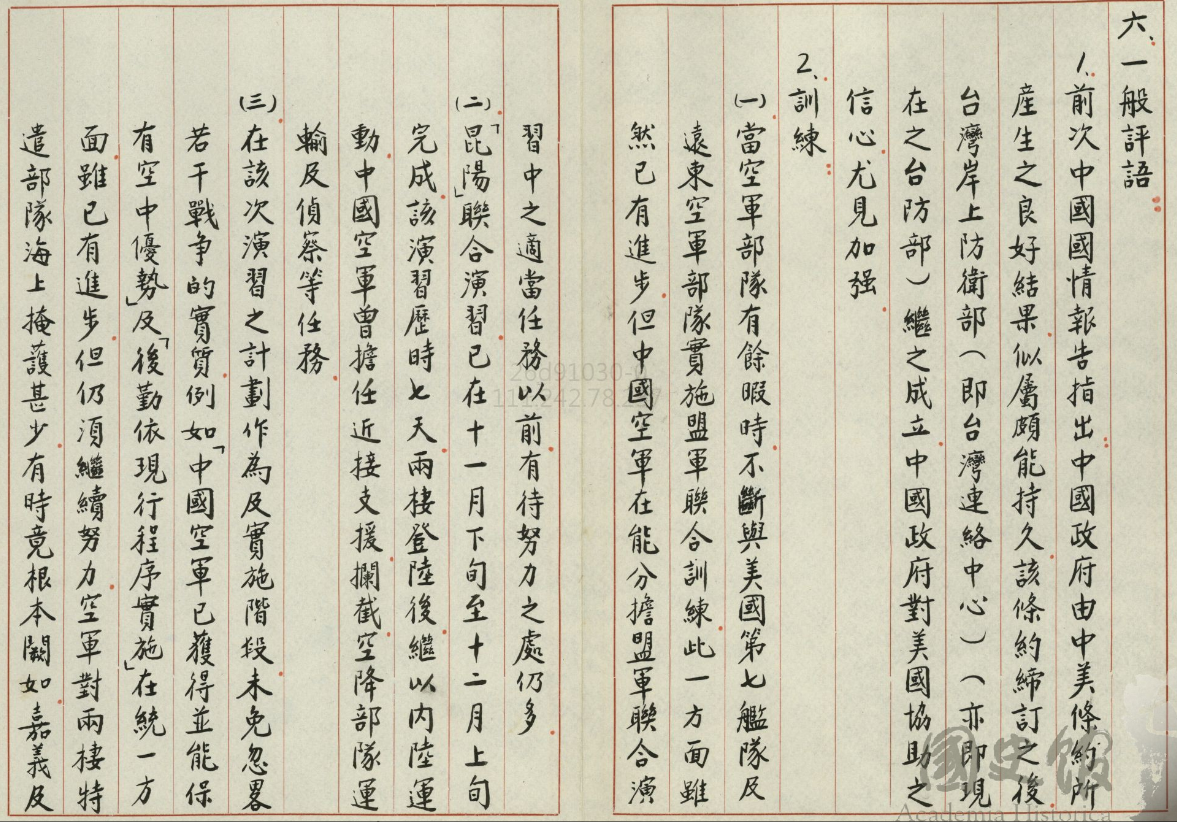 六、一般評語
1. 前次中國國情報告指出中國政府由中美條約所
產生之良好結果似屬頗能持久該條約締訂之後
台灣岸上防衛部(即台灣連絡中心)(亦即現
在之台防部)繼之成立中國政府對美國協助之
信心尤見加强
2. 訓練
(一)當空軍部隊有餘暇時不斷與美國第七艦隊及
遠東空軍部隊實施盟軍聯合訓練此一方面雖
然已有進步但中國空軍在能分擔盟軍聯合演
習中之適當任務以前有待努力之處仍多
(二)「昆陽」聯合演習已在十一月下旬至十二月上旬
完成該演習歷時七天兩棲登陸後繼以内陸運
動中國空軍曾擔任近接支援攔截空降部隊運
輸及偵察等任務
(三)在該次演習之計劃作為及實施階段未免忽畧
若干戰争的實質例如「中國空軍已獲得並能保
有空中優勢」及「後勤依現行程序實施」在統一方
面雖已有進步但仍須繼續努力空軍對兩棲特
遣部隊海上掩護甚少有時竟根本闕如嘉義及
國史館
Academia Historica